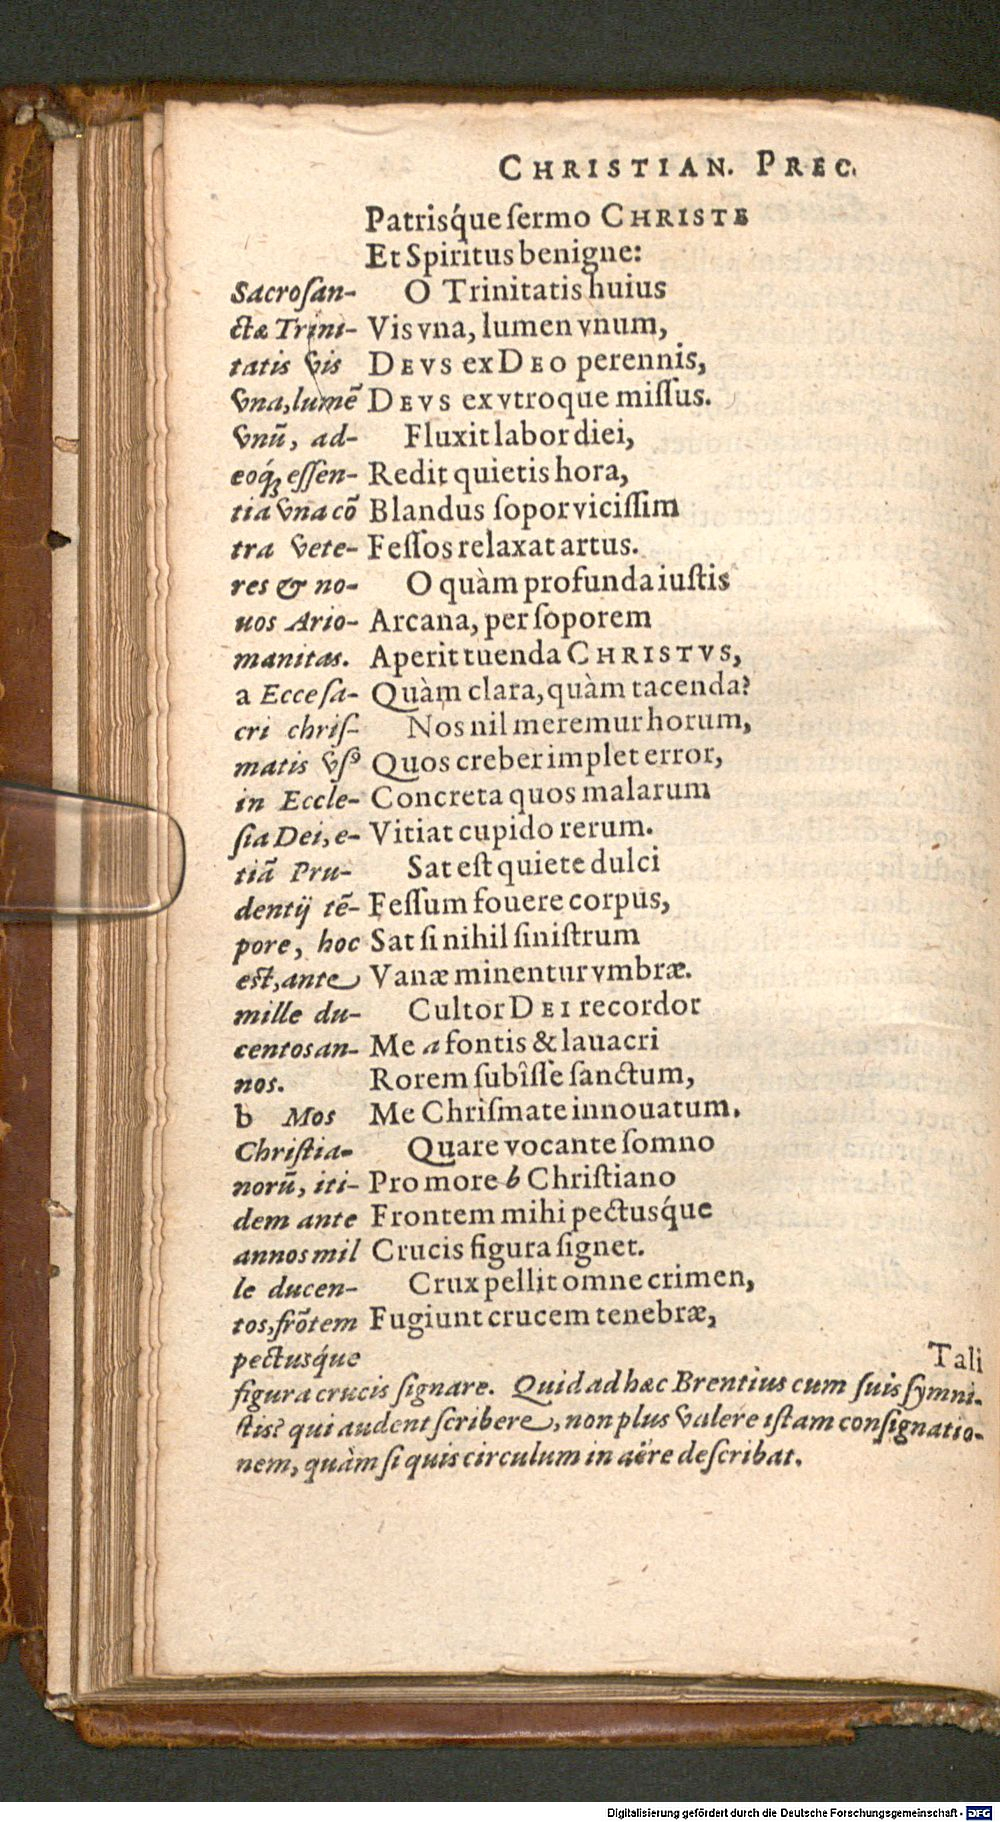 CHRISTIAN. PREC.
Patrisq́ue ſermo CHRISTE
Et Spiritus benigne:
O Trinitatis huius
Vis vna, lumen vnum,
DEVS ex DEO perennis,
DEVS ex vtroque miſſus.
Fluxit labor diei,
Redit quietis hora,
Blandus ſopor viciſſim
Feſſos relaxat artus.
O quàm profunda iuſtis
Arcana, per ſoporem
Aperit tuenda CHRISTVS,
Quàm clara, quàm tacenda?
Nos nil meremur horum,
Quos creber implet error,
Concreta quos malarum
Vitiat cupido rerum.
Sat eſt quiete dulci
Feſſum fouere corpus,
Sat ſi nihil ſiniſtrum
Vanæ minentur vmbræ.
Cultor DEI recordor
Me a fontis & lauacri
Rorem ſubîſſe ſanctum,
Me Chriſmate innouatum.
Quare vocante ſomno
Pro more b Chriſtiano
Frontem mihi pectusq́ue
Crucis figura ſignet.
Crux pellit omne crimen,
Fugiunt crucem tenebræ,
Tali
Sacroſan-
ctæ Trini-
tatis vis
vna, lumẽ
vnũ, ad-
eoq́ꝫ eſſen-
tia vna cõ
tra vete-
res & no-
uos Ario-
manitas.
a Ecce ſa-
cri chriſ-
matis vſꝰ
in Eccle-
ſia Dei, e-
tiã Pru-
dentij tẽ-
pore, hoc
eſt, ante
mille du-
centos an-
nos.
b Mos
Chriſtia-
norũ, iti-
dem ante
annos mil
le ducen-
tos, frõtem
pectusq́ue
figura crucis ſignare. Quid ad hæc Brentius cum ſuis ſymni-
ſtis? qui audent ſcribere, non plus valere iſtam conſignatio-
nem, quàm ſi quis circulum in aëre deſcribat.
Digitalisierung gefördert durch die Deutsche Forschungsgemeinschaft - DFG